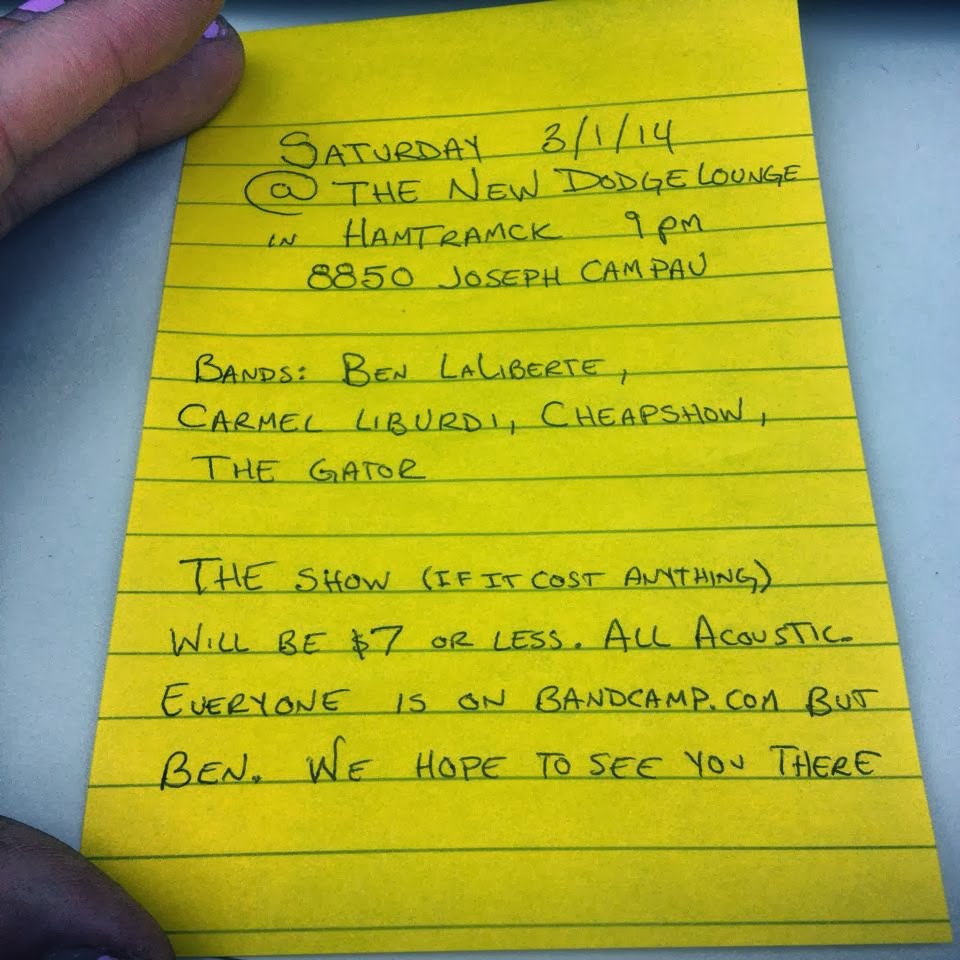 SATURDAY 3/1/14
@ THE NEW DODGE LOUNGE
IN HAMTRAMCK 9 PM
8850 JOSEPH CAMPAU
BANDS: BEN LALIBERTE,
CARMEL LIBURDI, CHEAPSHOW,
THE GATOR
THE SHOW (IF IT COST ANYTHING)
WILL BE $7 OR LESS. ALL ACOUSTIC.
EVERYONE IS ON BANDCAMP.COM BUT
BEN. WE HOPE TO SEE YOU THERE